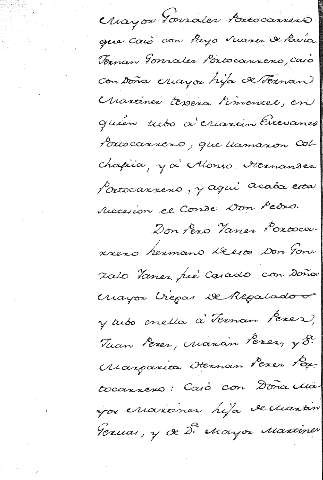 Mayor Gonzales Portocarrero
que casó con Payo Suarez de Pavia
Fernan Gonzales Portocarrero, casó
con Doña Mayor hija de Fernan
Martinez Pimentel, en
quien tubo á Martin
Portocarrero, que llamaron Col-
chafria, y á Alonso Hernandez
Portocarrero, y aqui acaba esta
succesion el Conde Don Pedro.
Don Pero Yañez Portoca-
rrero hermano Don Gon-
zalo Yañez fué Casado con Doña
Mayor de Regalados
y tubo enella á Fernan Perez,
Juan Perez, Martin Perez, y D.ª
Margarita Hernan Perez Por-
tocarrero: Casó con Doña Ma-
yor Martinez hija de Martin
y de D.ª Mayor Martinez